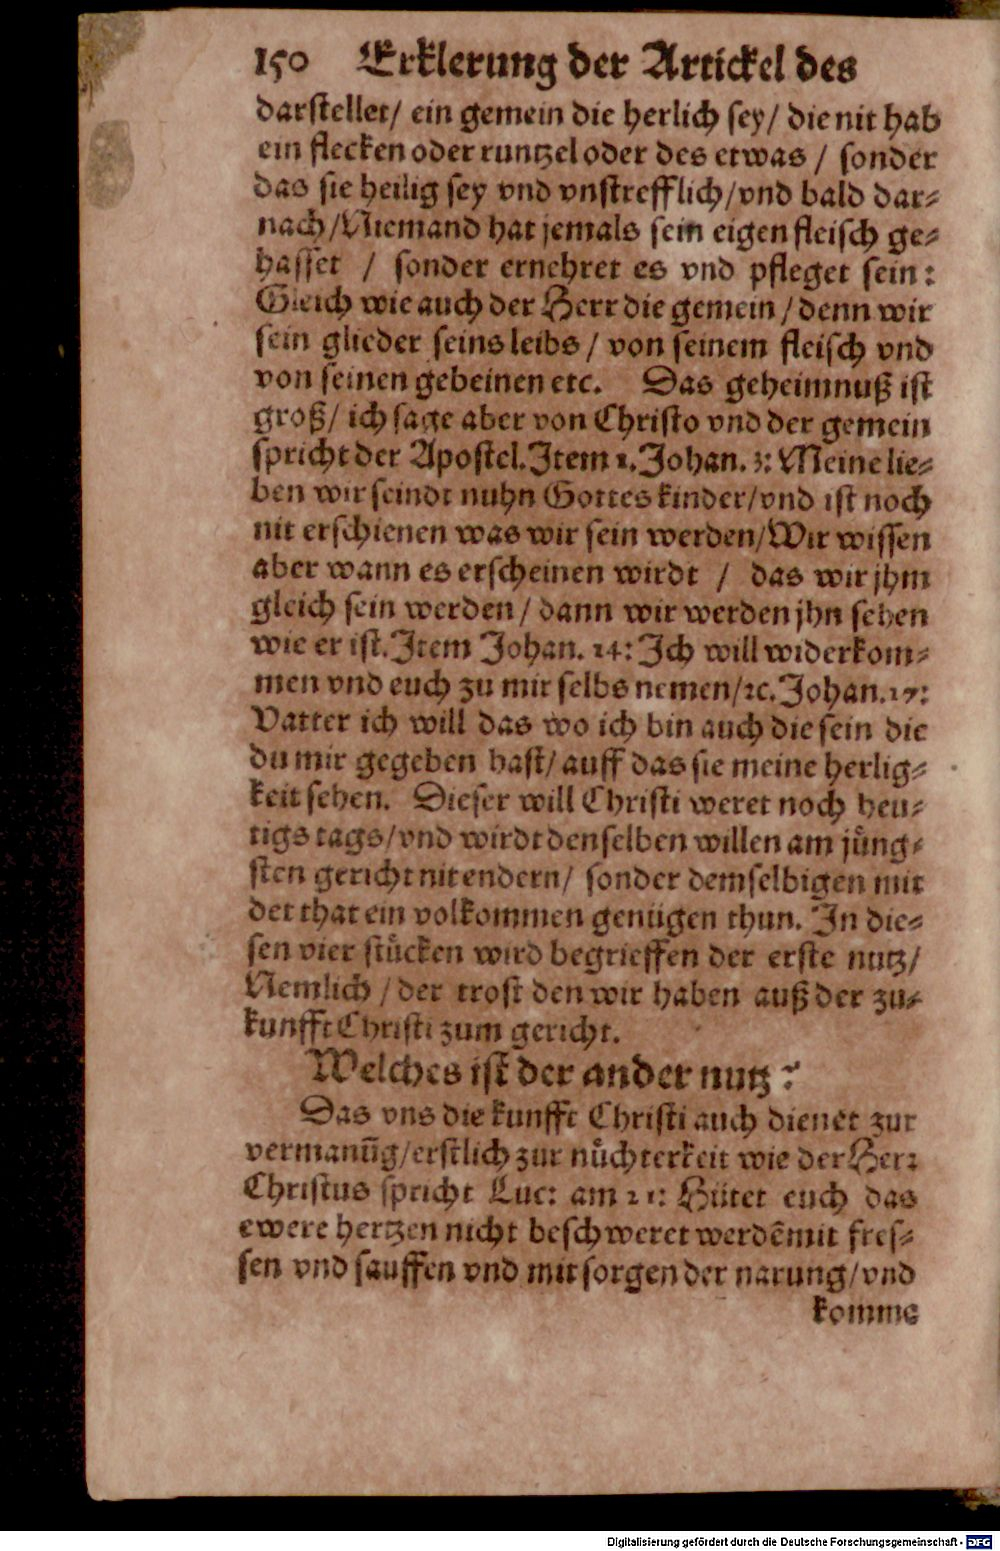 150 Erklerung der Artickel des
darstellet/ ein gemein die herlich sey/ die nit hab
ein flecken oder runtzel oder des etwas / sonder
das sie heilig sey vnd vnstrefflich/vnd bald dar⸗
nach/Niemand hat jemals sein eigen fleisch ge⸗
hasset / sonder ernehret es vnd pfleget sein:
Gleich wie auch der Herr die gemein/denn wir
sein glieder seins leibs/ von seinem fleisch vnd
von seinen gebeinen etc. Das geheimnuß ist
groß/ ich sage aber von Christo vnd der gemein
spricht der Apostel. Item 1. Johan. 3: Meine lie⸗
ben wir seindt nuhn Gottes kinder/vnd ist noch
nit erschienen was wir sein werden/Wir wissen
aber wann es erscheinen wirdt / das wir jhm
gleich sein werden/ dann wir werden jhn sehen
wie er ist. Item Johan. 14: Ich will widerkom⸗
men vnd euch zu mir selbs nemen/ꝛc. Johan. 17:
Vatter ich will das wo ich bin auch die sein die
du mir gegeben hast/ auff das sie meine herlig⸗
keit sehen. Dieser will Christi weret noch heu⸗
tigs tags/vnd wirdt denselben willen am jüng⸗
sten gericht nit endern/ sonder demselbigen mit
det that ein volkommen genügen thun. In die⸗
sen vier stücken wird begrieffen der erste nutz/
Nemlich /der trost den wir haben auß der zu⸗
kunfft Christi zum gericht.
Welches ist der ander nutz?
Das vns die kunfft Christi auch dienet zur
vermanūg/erstlich zur nüchterkeit wie der Herr
Christus spricht Luc: am 21: Hütet euch das
ewere hertzen nicht beschweret werdē mit fres⸗
sen vnd sauffen vnd mit sorgen der narung/vnd
komme
Digitalisierung gefördert durch die Deutsche Forschungsgemeinschaft - DFG